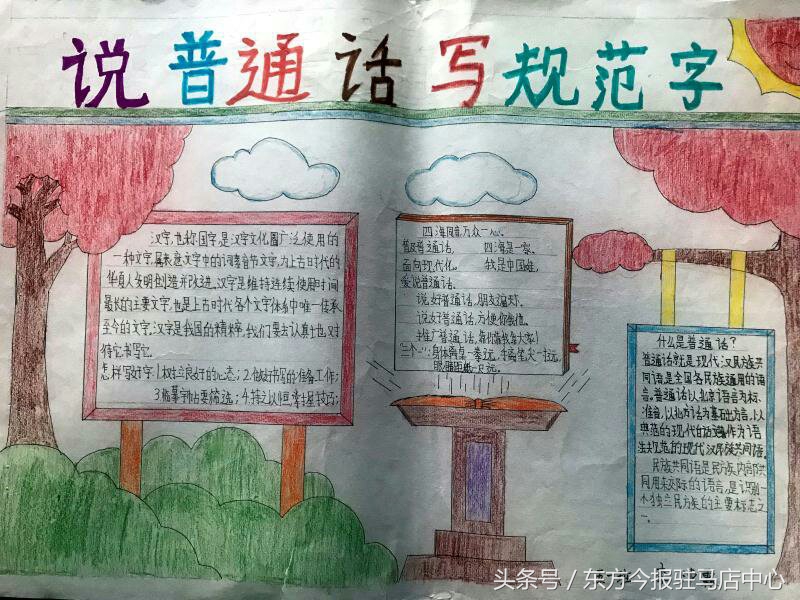 说普通话 写规范字
汉字,也称国字,是汉字文化圈广泛使用的
一种文字,属表意文字中的词素音节文字,为上古时代的
华夏人发明创造并改进,汉字是维持连续使用时间
最长的主要文字,也是上古时代各个文字体系中唯一传承
至今的文字,汉字是我国的精粹,我们要去认真去对
待它,书写它。
怎样写好字:1.树立良好的心态;2.做好书写的准备工作;
3.临摹字帖要筛选;4.持之以恒掌握技巧;
四海同音万众一心。
普及普通话, 四海是一家。
面向现代化。 我是中国娃,
爱说普通话。
说好普通话,朋友遍天下。
说好普通话,方便你我他。
推广普通话,靠你靠我靠大家!
三个一:身体离桌一拳远,手离笔尖一寸远,
眼睛距纸一尺远。
什么是普通话?
普通话就是现代汉民族共
同语,是全国各民族通用的语
言。普通话以北京语音为标
准音,以北方话为基础方言,以
典范的现代白话文作为语
法规范的现代汉民族共同语。
民族共同语是民族内部共
同用来交际的语言,是识别一
个独立民族的主要标志之
一。
头条号/东方今报驻马店中心